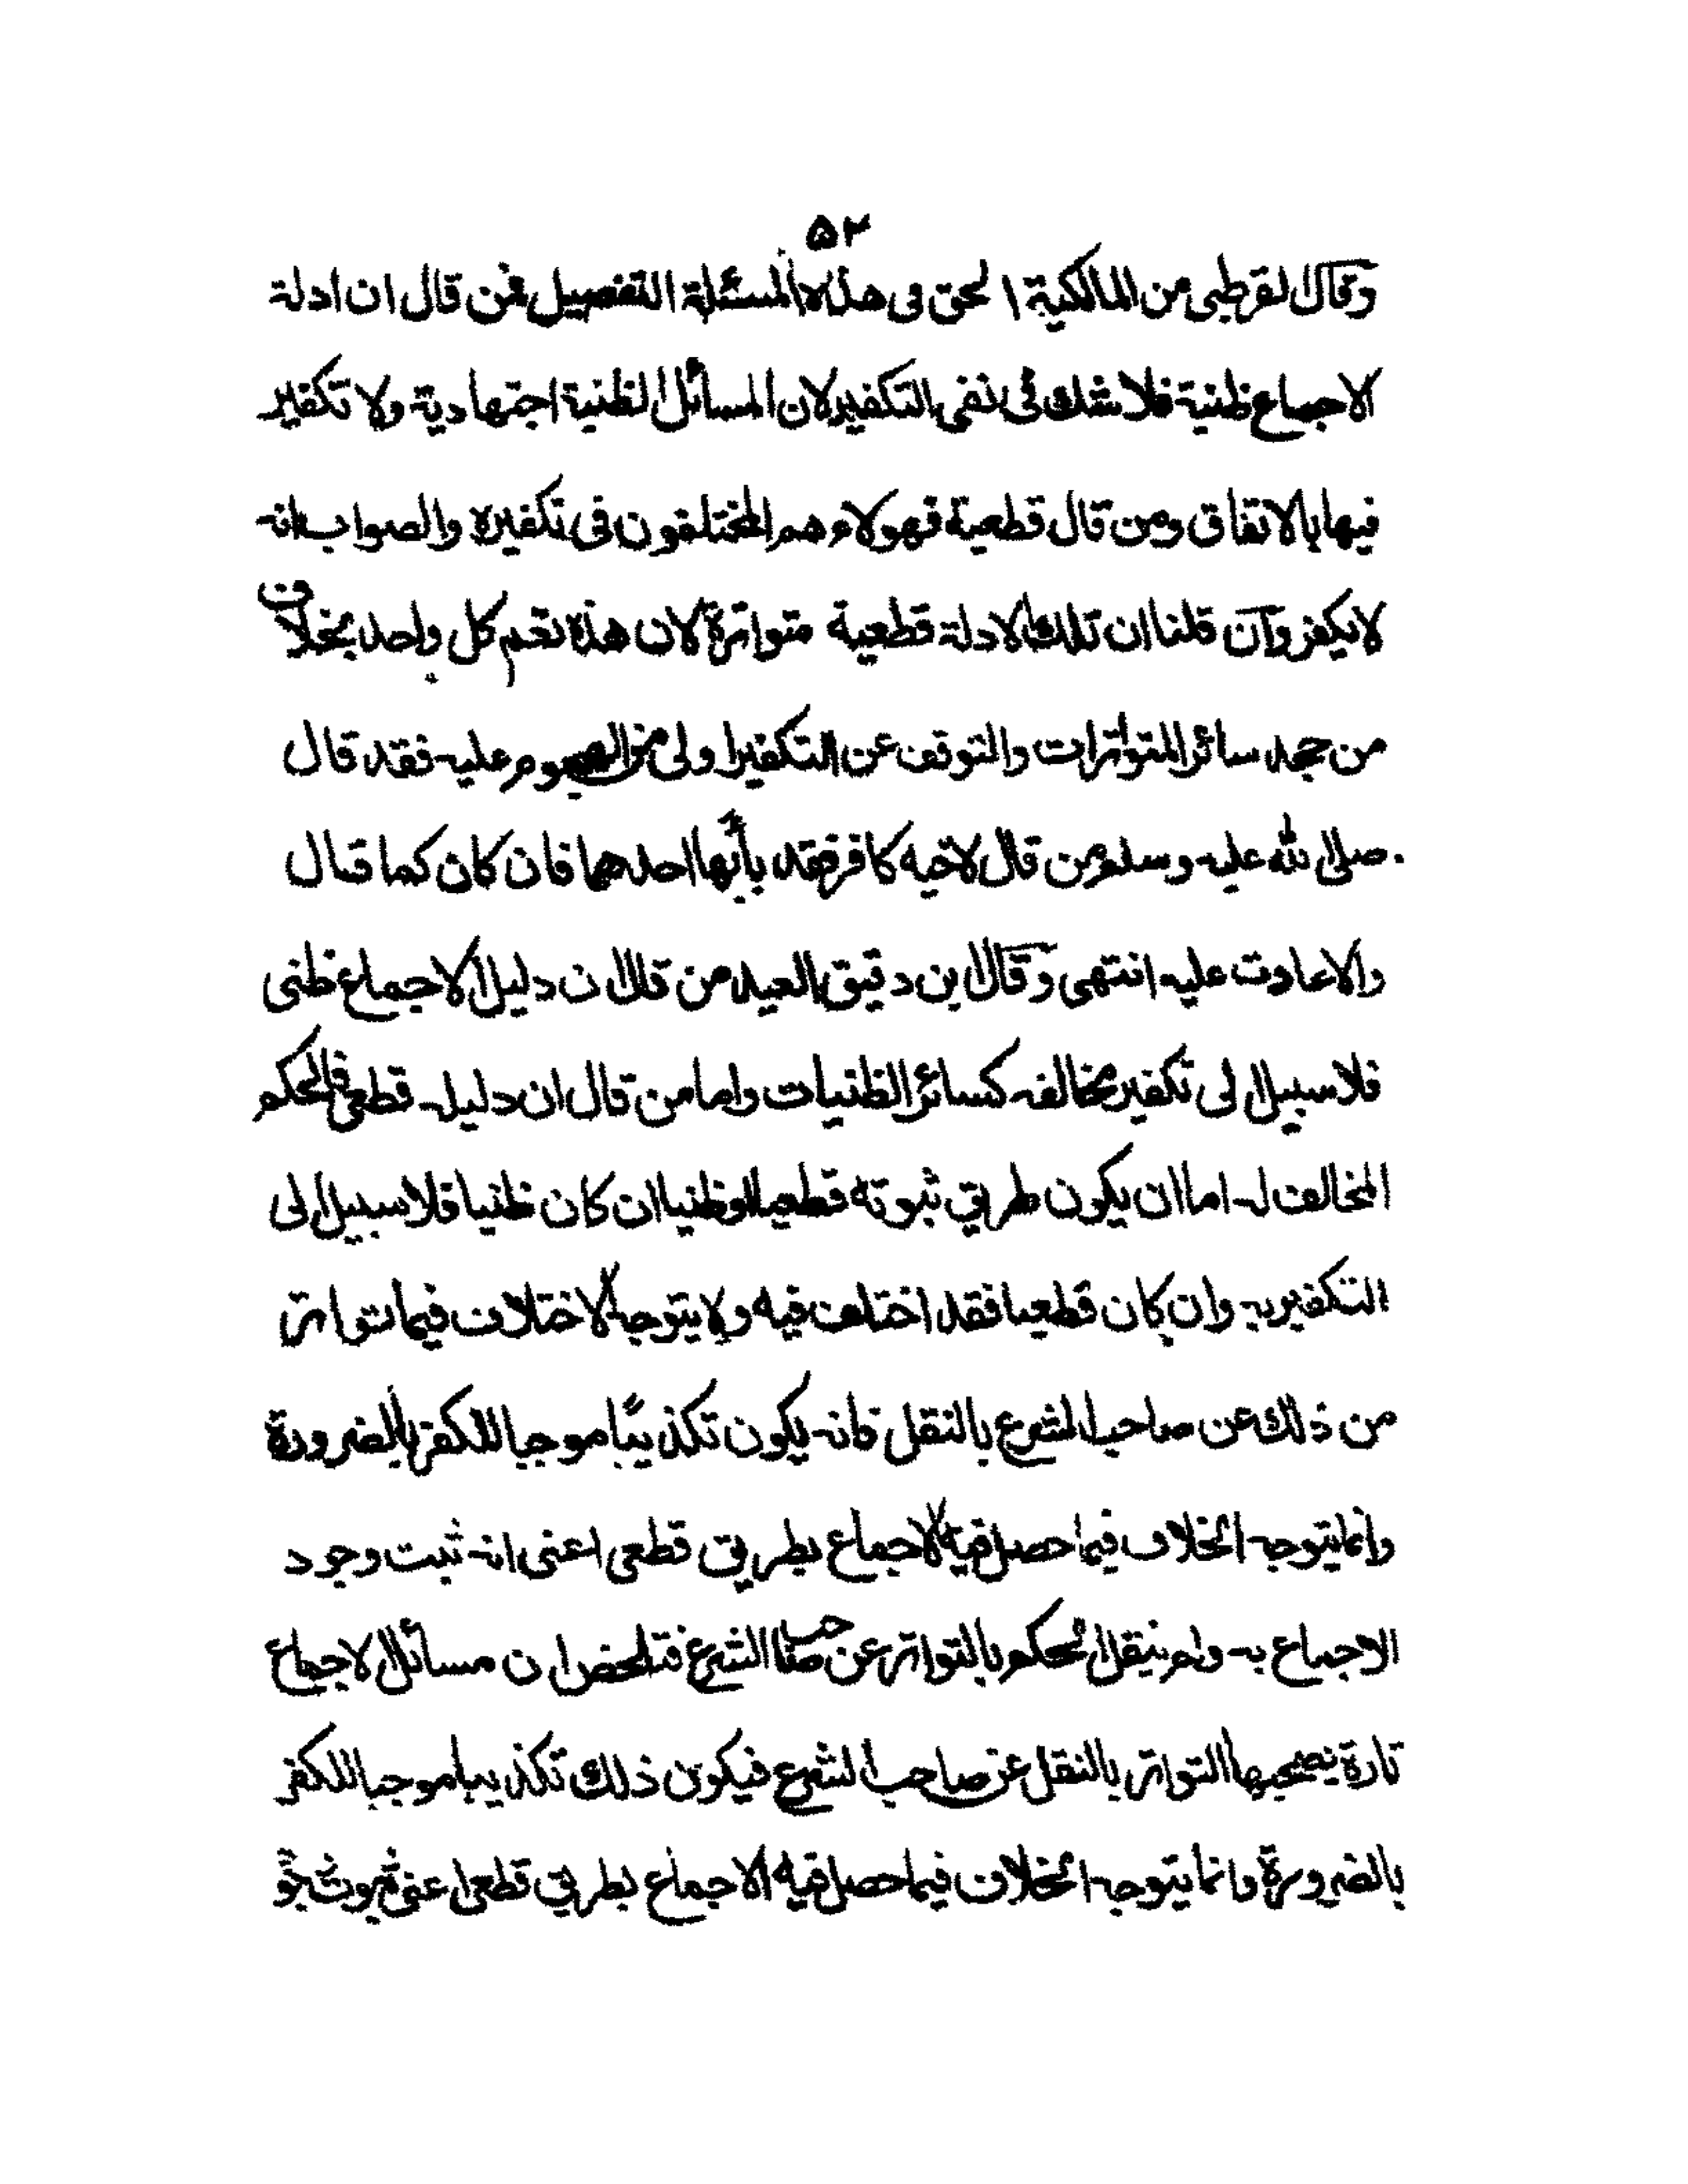 ۵۲
وقال القرطبى من المالكية الحق فى هذه المسئلة التفصيل فمن قال ان ادلة
الاجماع ظنية فلا شك فى نفى التكفير لان المسائل الظنية اجتهادية ولا تكفير
فيها بالاتفاق ومن قال قطعية فهولاء هم المختلفون فى تكفيره والصواب انه
لا يكفر وآن قلنا ان تلك الادلة قطعية متواترة لان هذه تعم كل واحد بخلاف
من جحد سائر المتواترات والتوقف عن التكفير اولى من الهجوم عليه فقد قال
صلى الله عليه وسلم من قال لاخيه كافر فقد باء بها احدهما فان كان كما قال
والا عادت عليه انتهى وقال ابن دقيق العيد من قال ان دليل الاجماع ظنى
فلا سبيل الى تكفير مخالفه كسائر الظنيات واما من قال ان دليله قطعى فالحكم
المخالف له اما ان يكون طريق ثبوته قطعيا او ظنيا ان كان ظنيا فلا سبيل الى
التكفير به وان كان قطعيا فقد اختلف فيه ولا يتوجه الاختلاف فيما تواتر
من ذلك عن صاحب الشرع بالنقل فانه يكون تكذيبًا موجبا للكفر بالضرورة
وانما يتوجه الخلاف فيما حصل فيه الاجماع بطريق قطعى اعنى انه ثبت وجود
الاجماع به ولم ينقل الحكم بالتواتر عن صاحب الشرع فتلخص ان مسائل الاجماع
تارة يصحبها التواتر بالنقل عن صاحب الشرع فيكون ذلك تكذيبا موجبا للكفر
بالضرورة وانما يتوجه الخلاف فيما حصل فيه الاجماع بطريق قطعى اعنى ثبوت